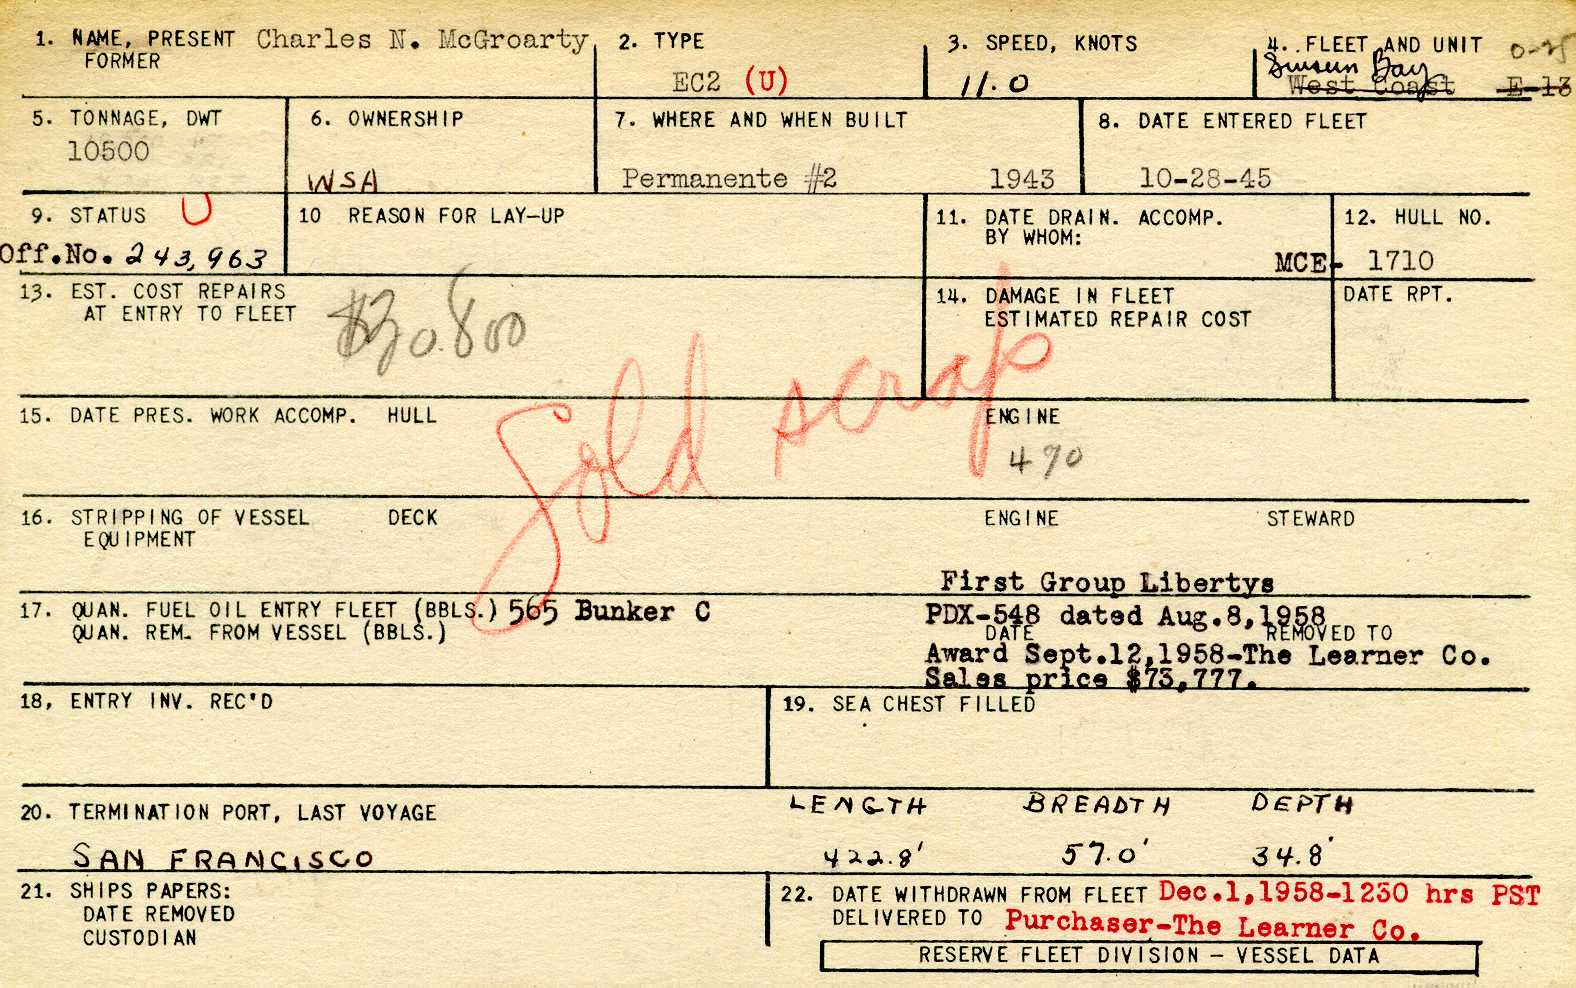 1. NAME, PRESENT Charles N. McGroarty
FORMER
2. TYPE
EC2 (U)
3. SPEED, KNOTS
11.0
4. FLEET AND UNIT 0-25
Suisun Bay
West Coast E-13
5. TONNAGE, DWT
10500
6. OWNERSHIP
WSA
7. WHERE AND WHEN BUILT
Permanente #2 1943
8. DATE ENTERED FLEET
10-28-45
9. STATUS U
Off.No. 243,963
10 REASON FOR LAY-UP
11. DATE DRAIN. ACCOMP.
BY WHOM:
12. HULL NO.
MCE- 1710
13. EST. COST REPAIRS
AT ENTRY TO FLEET
$30.800
14. DAMAGE IN FLEET
ESTIMATED REPAIR COST
DATE RPT.
Sold scrap
15. DATE PRES. WORK ACCOMP. HULL ENGINE
470
16. STRIPPING OF VESSEL DECK ENGINE STEWARD
EQUIPMENT
First Group Libertys
17. QUAN. FUEL OIL ENTRY FLEET (BBLS.) 565 Bunker C
QUAN. REM. FROM VESSEL (BBLS.)
PDX-548 dated Aug.8,1958
DATE REMOVED TO
Award Sept.12,1958-The Learner Co.
Sales price $73,777.
18, ENTRY INV. REC'D
19. SEA CHEST FILLED
20. TERMINATION PORT, LAST VOYAGE
SAN FRANCISCO
LENGTH BREADTH DEPTH
422.8' 57.0' 34.8'
21. SHIPS PAPERS:
DATE REMOVED
CUSTODIAN
22. DATE WITHDRAWN FROM FLEET Dec.1,1958-1230 hrs PST
DELIVERED TO Purchaser-The Learner Co.
RESERVE FLEET DIVISION – VESSEL DATA